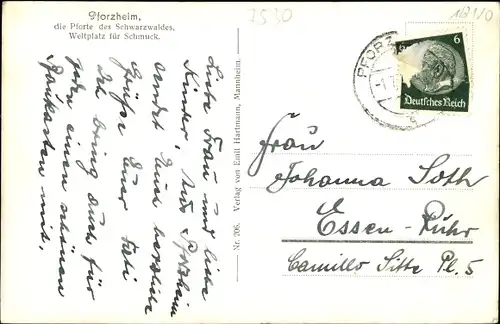 Pforzheim,
die Pforte des Schwarzwaldes,
Weltplatz für Schmuck.
7530
Liebe Frau und liebe
Kinder, Aus Pforzheim
sendet Euch herzliche
Grüße Euer Vati
Ich bring auch für
einen schönen
mit.
Nr. 206. Verlag von Emil Hartmann, Mannheim.
PFORZ
6
Deutsches Reich
Frau
Johanna Soth
Essen-Ruhr
Camillo Sitte Pl. 5